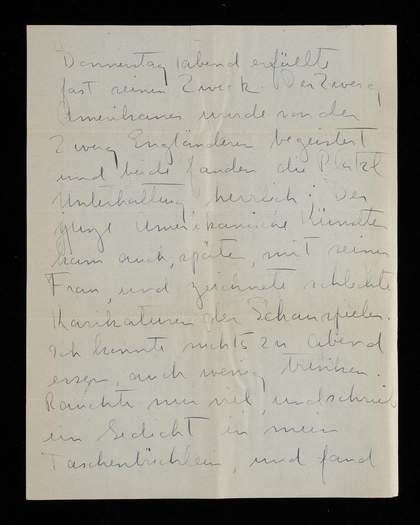 Donnerstag Abend erfüllte
fast seinen Zweck. Der Zwerg
Amerikaner wurde von den
Zwerg Engländerin begeistert
und beide fanden die Platzl
Unterhaltung herrlich! Der
junge Amerikanische Künstler
kam auch, später, mit seiner
Frau, und zeichnete schlechte
Karikaturen der Schauspieler.
Ich konnte nichts zu Abend
essen, auch wenig trinken.
Rauchte nur viel, und schrieb
ein Gedicht in mein
Taschenbüchlein, und fand